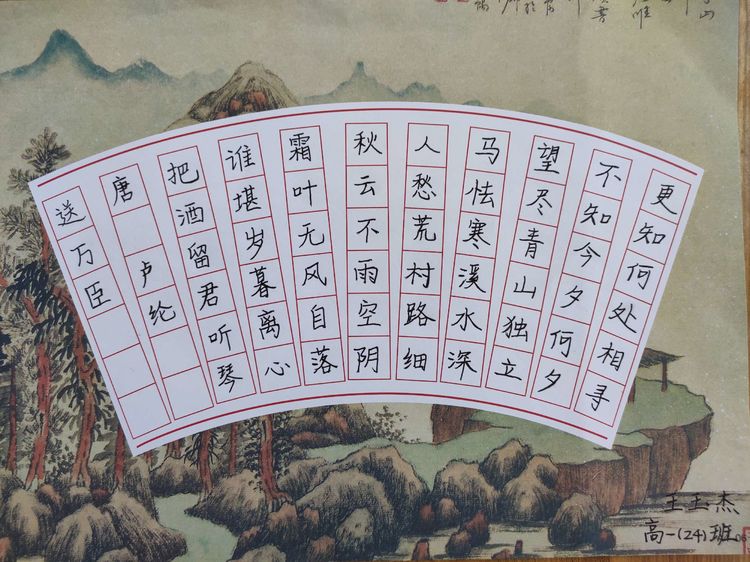 送万臣
唐 卢纶
把酒留君听琴
谁堪岁暮离心
霜叶无风自落
秋云不雨空阴
人愁荒村路细
马怯寒溪水深
望尽青山独立
不知今夕何夕
更知何处相寻
王玉杰
高一(24)班